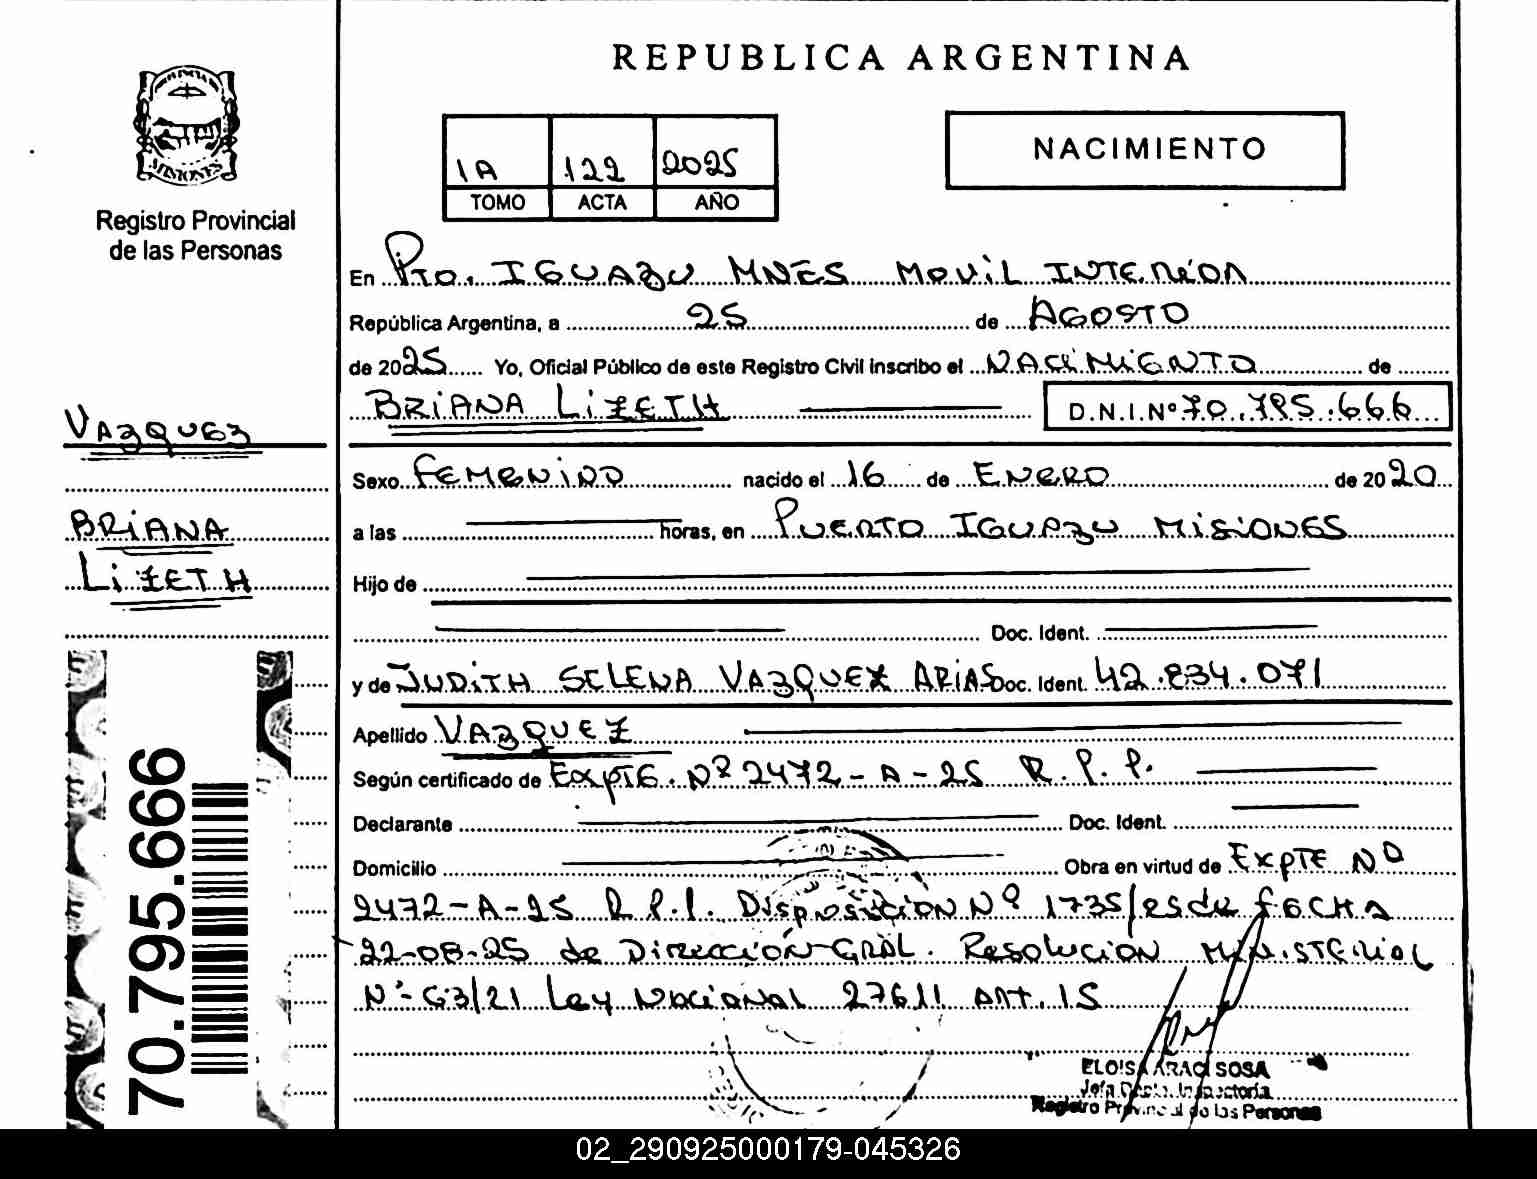 REPUBLICA ARGENTINA
MISIONES
Registro Provincial
de las Personas
1A 122 2025
TOMO ACTA AÑO
NACIMIENTO
En Pto. IGUAZU MNES MOVIL INTERIOR
República Argentina, a 25 de AGOSTO
de 2025 Yo, Oficial Público de este Registro Civil inscribo el NACIMIENTO de
BRIANA LIZETH D.N.I.Nº 70.795.666
VAZQUEZ
BRIANA
LIZETH
Sexo FEMENINO nacido el 16 de ENERO de 2020
a las horas, en PUERTO IGUAZU MISIONES
Hijo de
Doc. Ident.
y de JUDITH SELENA VAZQUEZ ARIAS Doc. Ident. 42.834.071
Apellido VAZQUEZ
Según certificado de EXPTE. Nº 2472-A-25 R.P.P.
Declarante Doc. Ident.
Domicilio Obra en virtud de EXPTE Nº
2472-A-25 R.P.P. Disposición Nº 1735/25 de FECHA
22-08-25 de Dirección GRAL. Resolución MINISTERIAL
Nº 63/21 Ley Nacional 27611 Art. 15
70.795.666
ELOISA ARACI SOSA
Jefa Dpto. Inspectoría
Registro Provincial de las Personas
02_290925000179-045326